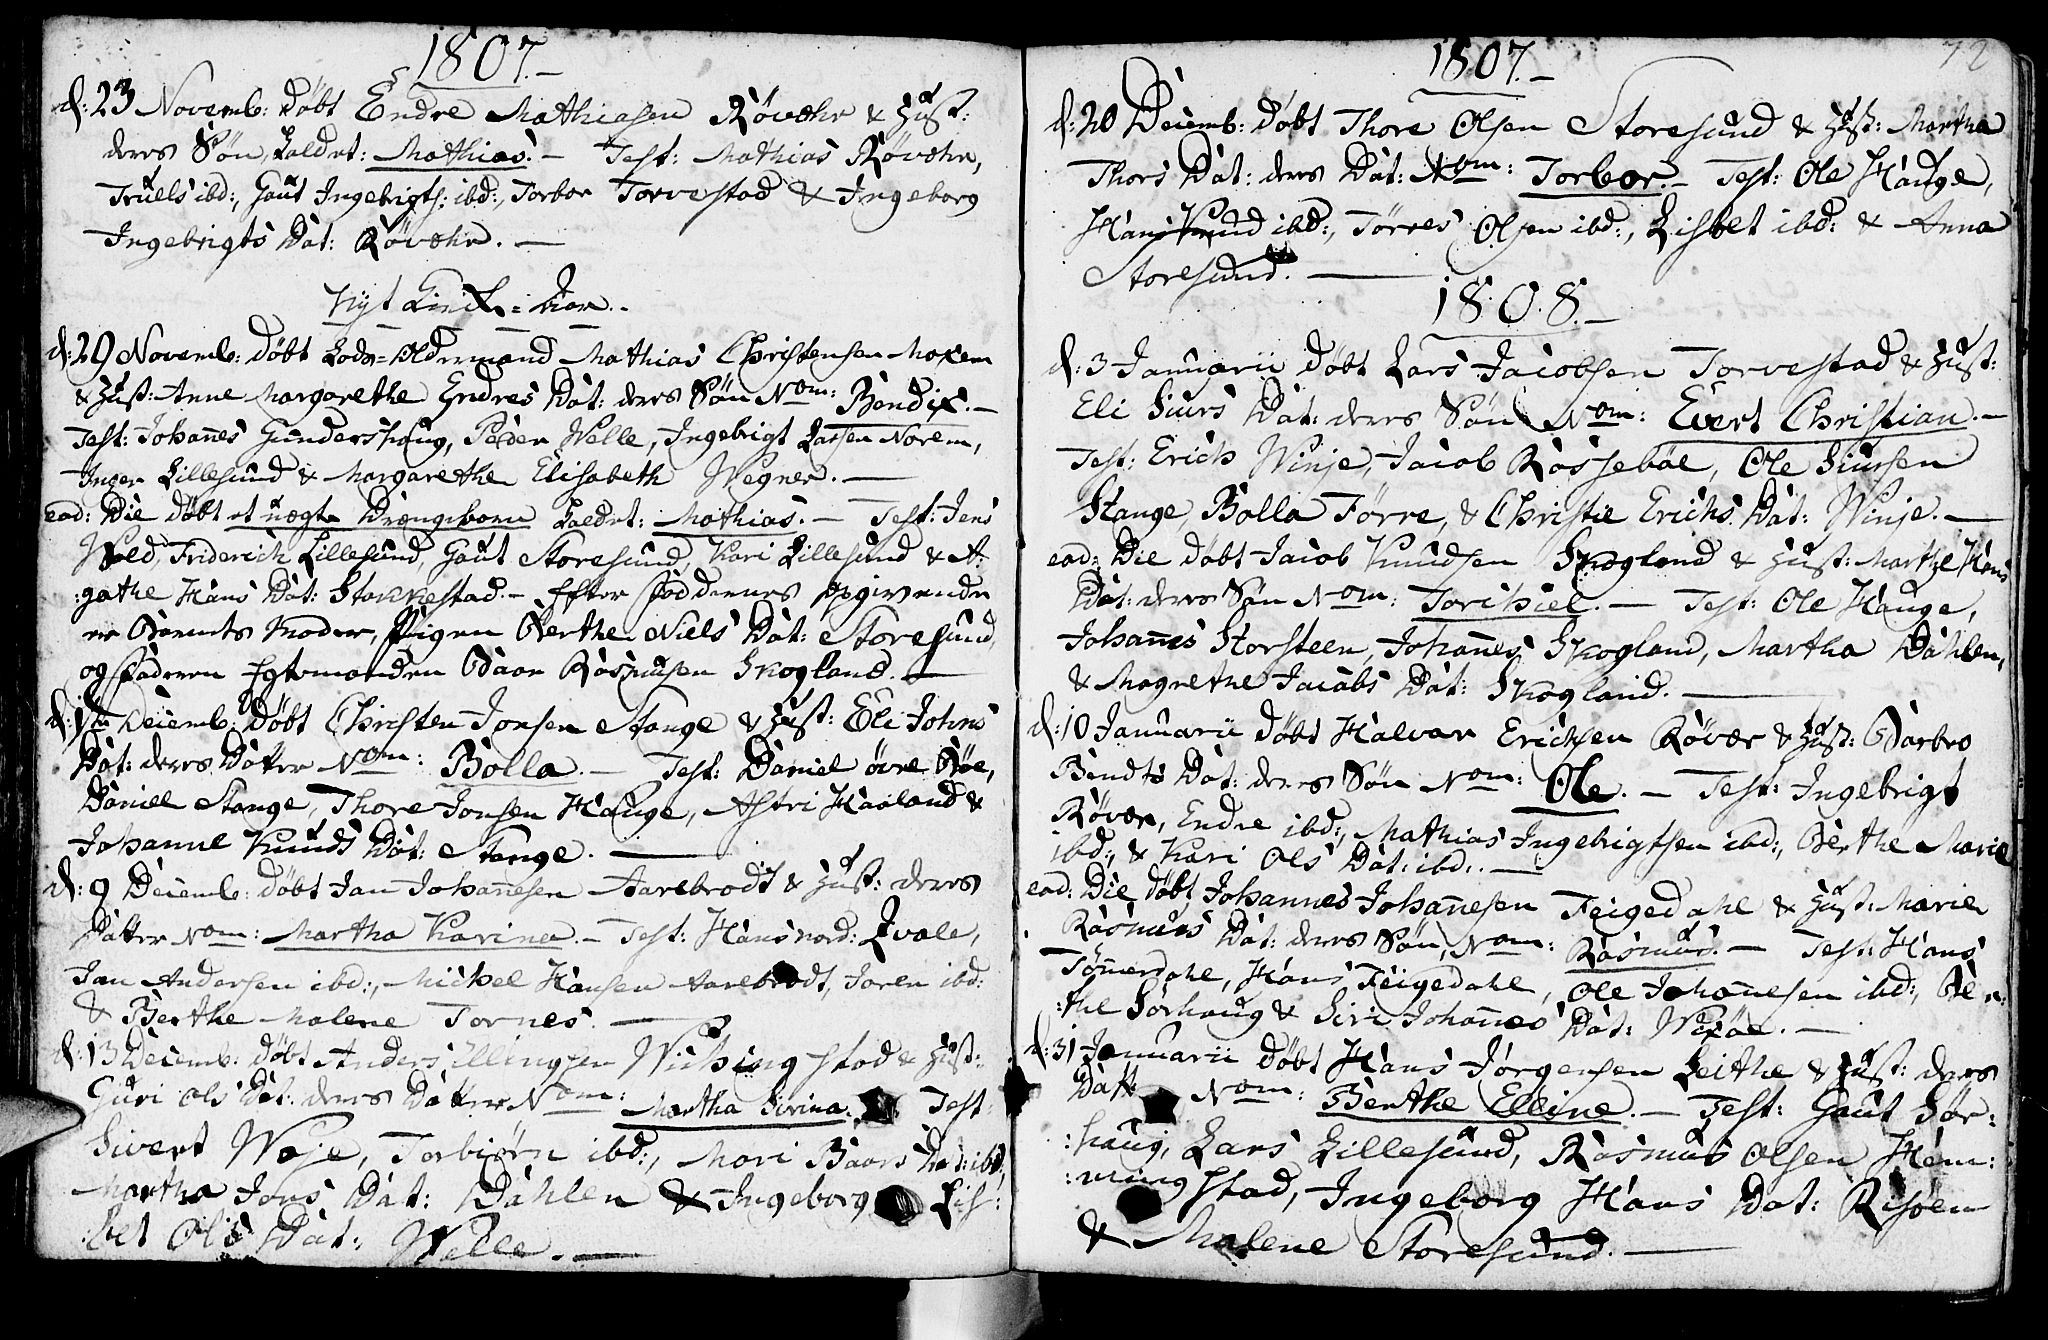 1807.
d: 23 Novemb: døbt Endre Mathiasen Røvæhr & Hust:
deres Søn, kaldet: Mathias. – Test: Mathias Røvæhr,
Truels ibd:, Gaut Ingebrigts: ibd:, Torbor Torvestad & Ingeborg
Ingebrigts Dat: Røvæhr. –
Nyt Kirke-Aar. –
d: 29 Novemb: døbt Lods-Oldermand Mathias Christensen
& Hust: Anne Margarethe Endres Dat: deres Søn Nom: Bendix. –
Test: Johañes Gundershaug, Peder Welle, Ingebrigt Larsen Norem,
Inger Lillesund & Margarethe Elisabeth Wegner. –
ead: Die døbt et uægte Drengebarn kaldet: Mathias. – Test: Jens
Wold, Friderich Lillesund, Gaut Storesund, Kari Lillesund & A-
:gathe Hans Dat: Stakkestad. – Efter Føddernes Opgivende
er Barnets Moder, Pigen Berthe Niels Dat: Storesund,
og Faderen Egtemanden Baar Rasmusen Skogland. –
d: 1ste Decemb: døbt Christen Jonsen Stange & Hust: Eli Johns
Dat: deres Datter Nom: Bolla. – Test: Daniel øvre Bøe,
Daniel Stange, Thore Jonsen Hauge, Astri Haaland &
Johanne Knuds Dat: Stange. –
d: 9 Decemb: døbt Jan Johañesen Aarebrodt & Hust: deres
Datter Nom: Martha Karina. – Test: Hans nord: Qvale,
Jan Andersen ibd:, Michel Hansen Aarebrodt, Joren ibd:
& Berthe Malene Tornes. –
d: 13 Decemb: døbt Anders Ellingsen Wichingstad & Hust:
Guri Ols Dat: deres Datter Nom: Martha Sirina. Test:
Sivert Woje, Torbiørn ibd:, Mari Baars Dat: ibd:
Martha Jons Dat: Dahlen & Ingeborg Lis:
:bet Ols Dat: Welle. –
72
1807. –
d: 20 Decemb: døbt Thore Olsen Storesund & Hust: Martha
Thors Dat: deres Dat: Nom: Torbor. – Test: Ole Hauge,
Hans Knud ibd:, Tørres Olsen ibd:, Lisbet ibd: & Anna
Storesund. –
1808. –
d: 3 Januarii døbt Lars Jacobsen Torvestad & Hust:
Eli Siurs Dat: deres Søn Nom: Evert Christian. –
Test: Erich Winje, Jacob Røssebøe, Ole Siursen
Stange, Bolla Førre, & Christie Erichs Dat: Winje. –
ead: Die døbt Jacob Knudsen Skogland & Hust: Marthe Hans
Dat: deres Søn Nom: Torchiel. – Test: Ole Hauge,
Johañes Storsteen, Johañes Skogland, Martha Dahlen,
& Magrethe Jacobs Dat: Skogland. –
d: 10 Januarii døbt Halvar Erichsen Røvær & Hust: Barbro
Bendts Dat: deres Søn Nom: Ole. – Test: Ingebrigt
Røvær, Endre ibd:, Mathias Ingebrigtsen ibd:, Berthe Marie
ibd:, & Kari Ols Dat: ibd: –
ead: Die døbt Johannes Johañesen Feigedahl & Hust: Marie
Rasmus Dat: deres Søn, Nom: Rasmus. – Test: Hans
Tømerdahl, Hans Feigedahl, Ole Johañesen ibd:, Ber:
:the Sørhaug & Siri Johañes Dat: –
d: 31 Januarii døbt Hans Jørgensen Leithe & Hust: deres
Datt: Nom: Berthe Elline. – Test: Gaut Sør:
:haug, Lars Lillesund, Rasmus Olsen Hem:
:mingstad, Ingeborg Hans Dat: Risøen
& Malene Storesund. –